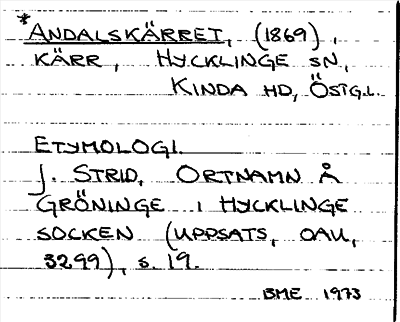 *ANDALSKÄRRET, (1869),
KÄRR, HYCKLINGE SN,
KINDA HD, ÖSTG.L.
ETYMOLOGI.
J. STRID, ORTNAMN Å
GRÖNINGE I HYCKLINGE
SOCKEN (UPPSATS, OAU,
3299), S. 19.
BME 1973